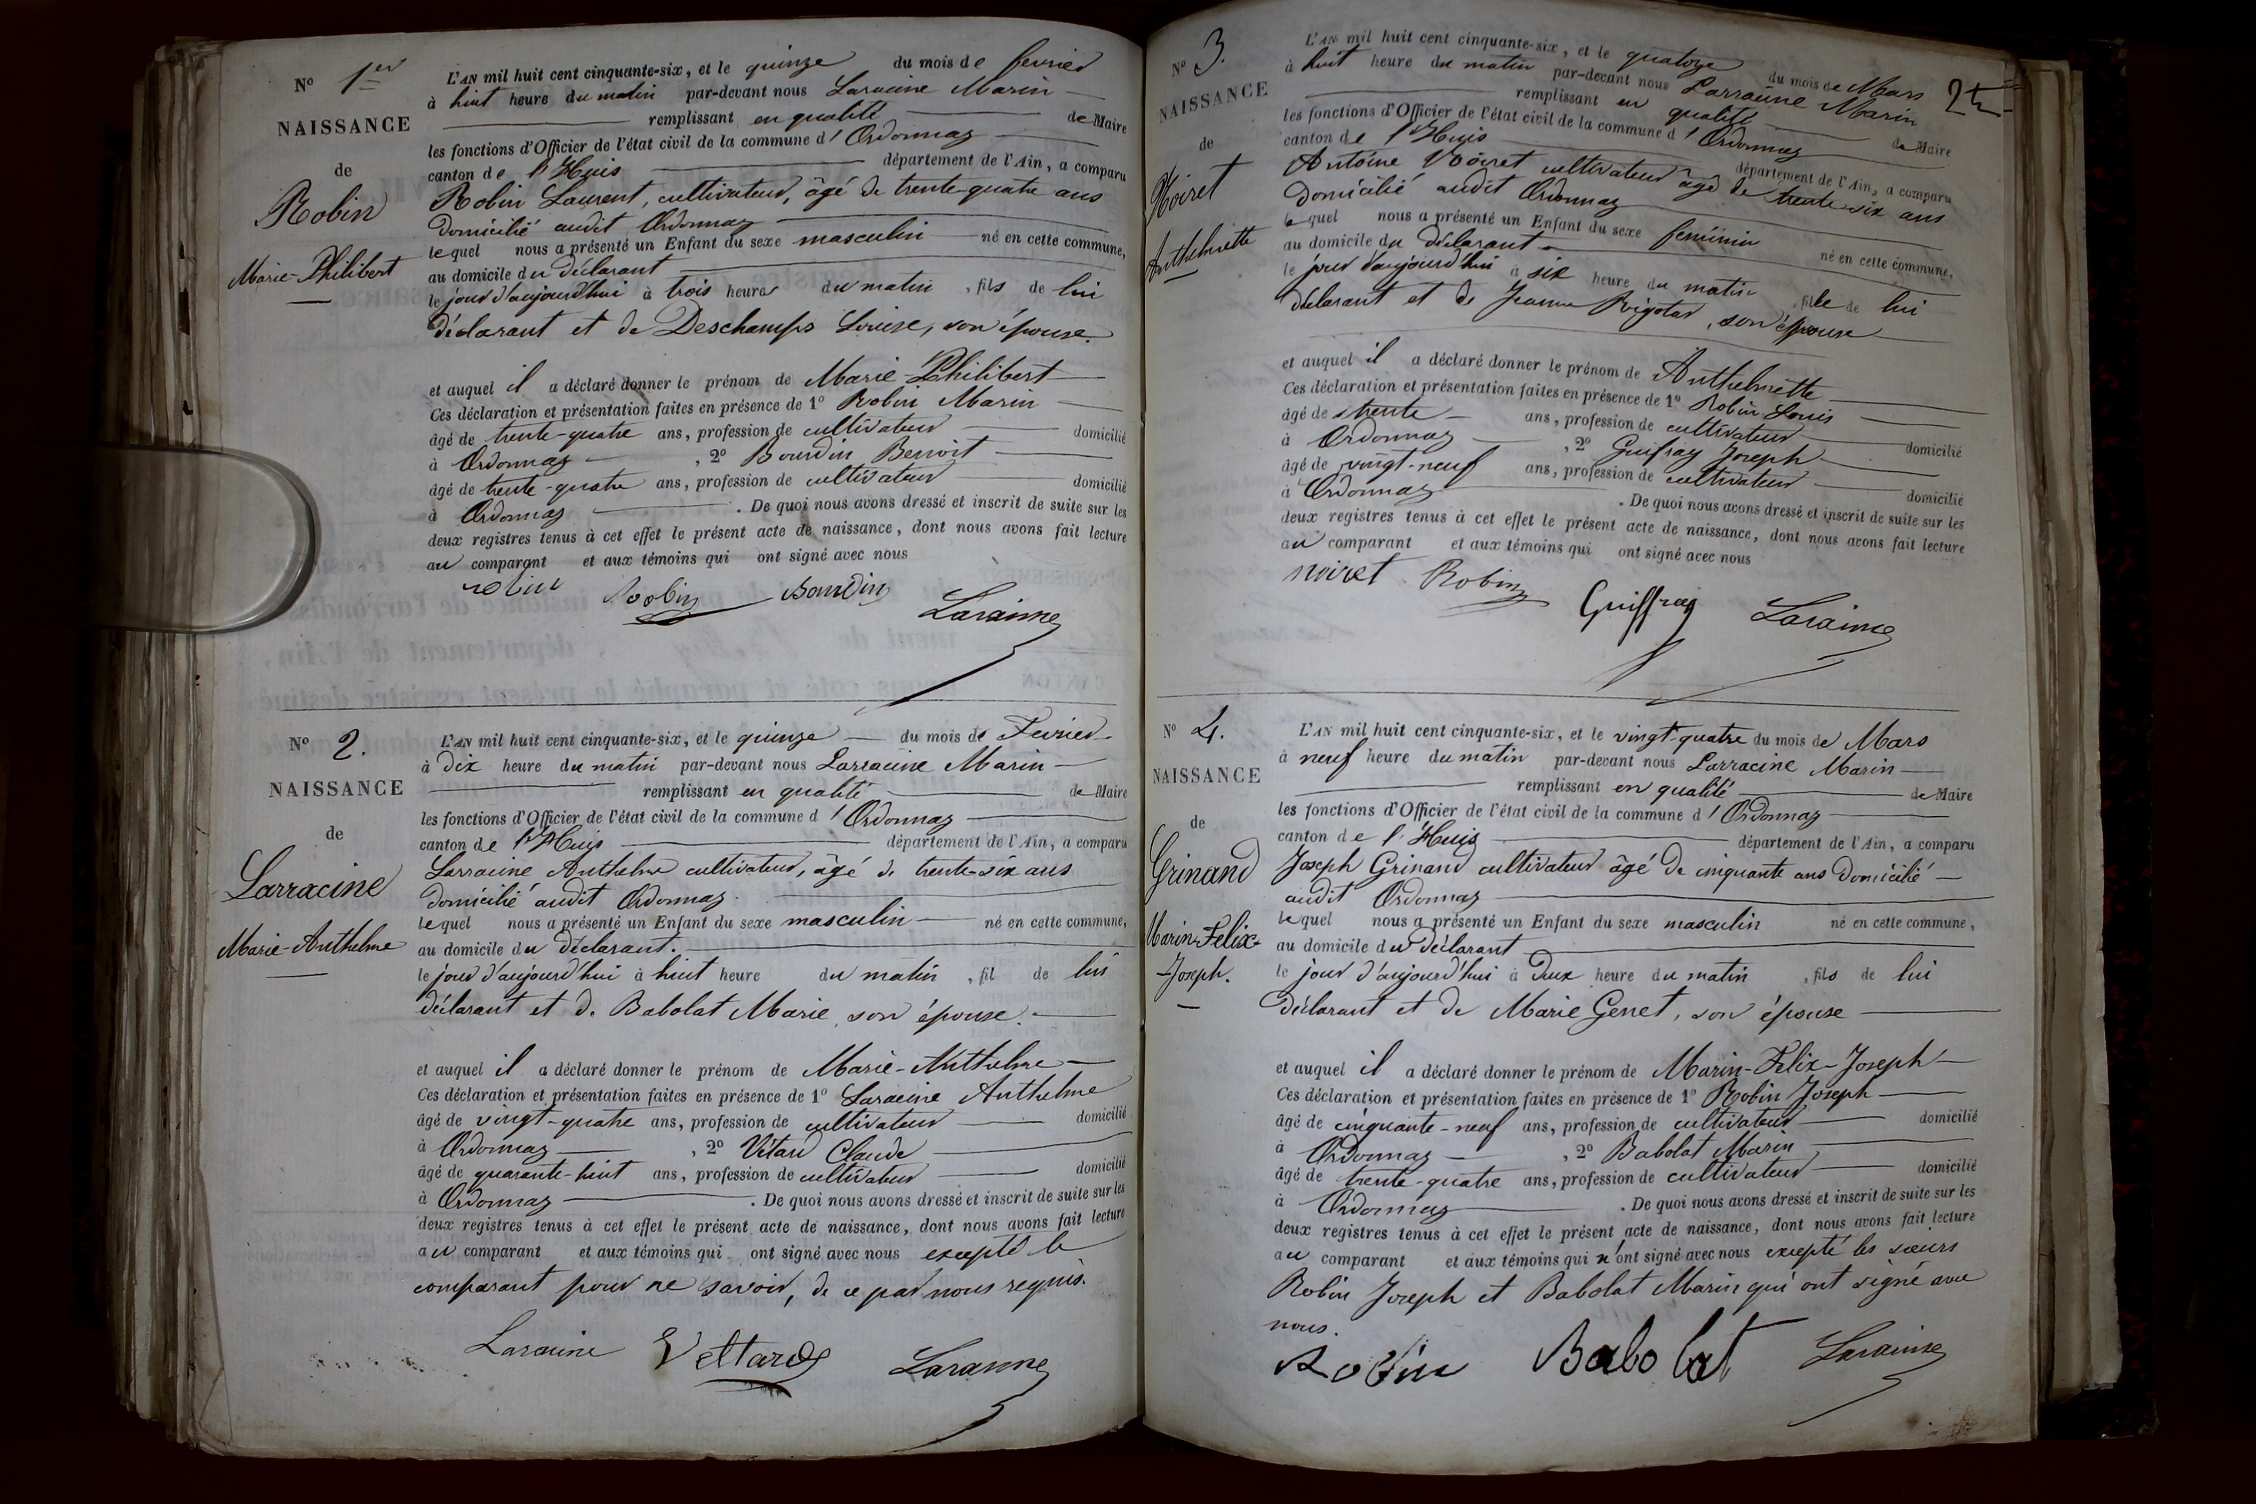 N° 1er
NAISSANCE
de
Robin
Marie-Philibert
L'AN mil huit cent cinquante-six, et le quinze du mois de fevrier
à huit heure du matin par-devant nous Laracine Marin
remplissant en qualité de Maire
les fonctions d'Officier de l'état civil de la commune d'Ordonnaz
canton de l'Huis département de l'Ain, a comparu
Robin Laurent, cultivateur, âgé de trente-quatre ans
domicilié audit Ordonnaz
lequel nous a présenté un Enfant du sexe masculin né en cette commune,
au domicile du déclarant
le jour d'aujourd'hui à trois heures du matin, fils de lui
déclarant et de Deschamps Louise, son épouse.
et auquel il a déclaré donner le prénom de Marie-Philibert
Ces déclaration et présentation faites en présence de 1° Robin Marin
âgé de trente-quatre ans, profession de cultivateur domicilié
à Ordonnaz, 2° Bourdin Benoit
âgé de trente-quatre ans, profession de cultivateur domicilié
à Ordonnaz. De quoi nous avons dressé et inscrit de suite sur les
deux registres tenus à cet effet le présent acte de naissance, dont nous avons fait lecture
au comparant et aux témoins qui ont signé avec nous
robin Robin Bourdin Laracine
N° 2.
NAISSANCE
de
Larracine
Marie-Anthelme
L'AN mil huit cent cinquante-six, et le quinze du mois de Fevrier
à dix heure du matin par-devant nous Larracine Marin
remplissant en qualité de Maire
les fonctions d'Officier de l'état civil de la commune d'Ordonnaz
canton de l'Huis département de l'Ain, a comparu
Larracine Anthelme cultivateur, âgé de trente-six ans
domicilié audit Ordonnaz.
lequel nous a présenté un Enfant du sexe masculin né en cette commune,
au domicile du déclarant.
le jour d'aujourd'hui à huit heure du matin, fil de lui
déclarant et de Babolat Marie, son épouse.
et auquel il a déclaré donner le prénom de Marie-Anthelme
Ces déclaration et présentation faites en présence de 1° Laracine Anthelme
âgé de vingt-quatre ans, profession de cultivateur domicilié
à Ordonnaz, 2° Vétard Claude
âgé de quarante-huit ans, profession de cultivateur domicilié
à Ordonnaz. De quoi nous avons dressé et inscrit de suite sur les
deux registres tenus à cet effet le présent acte de naissance, dont nous avons fait lecture
au comparant et aux témoins qui ont signé avec nous excepté le
comparant pour ne savoir, de ce par nous requis.
Laracine Vettard Laracine
N° 3.
NAISSANCE
de
Noiret
Anthelmette
2
L'AN mil huit cent cinquante-six, et le quatorze du mois de Mars
à huit heure du matin par-devant nous Larracine Marin
remplissant en qualité de Maire
les fonctions d'Officier de l'état civil de la commune d'Ordonnaz
canton de l'Huis département de l'Ain, a comparu
Antoine Noiret cultivateur âgé de trente-six ans
domicilié audit Ordonnaz
lequel nous a présenté un Enfant du sexe feminin né en cette commune,
au domicile du déclarant
le jour d'aujourd'hui à six heure du matin, fille de lui
déclarant et de Jeanne Rigotar, son épouse
et auquel il a déclaré donner le prénom de Anthelmette
Ces déclaration et présentation faites en présence de 1° Robin Louis
âgé de trente ans, profession de cultivateur domicilié
à Ordonnaz, 2° Guifray Joseph
âgé de vingt-neuf ans, profession de cultivateur domicilié
à Ordonnaz. De quoi nous avons dressé et inscrit de suite sur les
deux registres tenus à cet effet le présent acte de naissance, dont nous avons fait lecture
au comparant et aux témoins qui ont signé avec nous
noiret Robin Guiffray Laracine
N° 4.
NAISSANCE
de
Grinand
Marin-Felix-
Joseph.
L'AN mil huit cent cinquante-six, et le vingt-quatre du mois de Mars
à neuf heure du matin par-devant nous Larracine Marin
remplissant en qualité de Maire
les fonctions d'Officier de l'état civil de la commune d'Ordonnaz
canton de l'Huis département de l'Ain, a comparu
Joseph Grinand cultivateur âgé de cinquante ans domicilié
audit Ordonnaz
lequel nous a présenté un Enfant du sexe masculin né en cette commune,
au domicile du déclarant
le jour d'aujourd'hui à deux heure du matin, fils de lui
déclarant et de Marie Genet, son épouse
et auquel il a déclaré donner le prénom de Marin-Felix-Joseph
Ces déclaration et présentation faites en présence de 1° Robin Joseph
âgé de cinquante-neuf ans, profession de cultivateur domicilié
à Ordonnaz, 2° Babolat Marin
âgé de trente-quatre ans, profession de cultivateur domicilié
à Ordonnaz. De quoi nous avons dressé et inscrit de suite sur les
deux registres tenus à cet effet le présent acte de naissance, dont nous avons fait lecture
au comparant et aux témoins qui n'ont signé avec nous excepté les sieurs
Robin Joseph et Babolat Marin qui ont signé avec
nous.
Robin Babolat Laracine